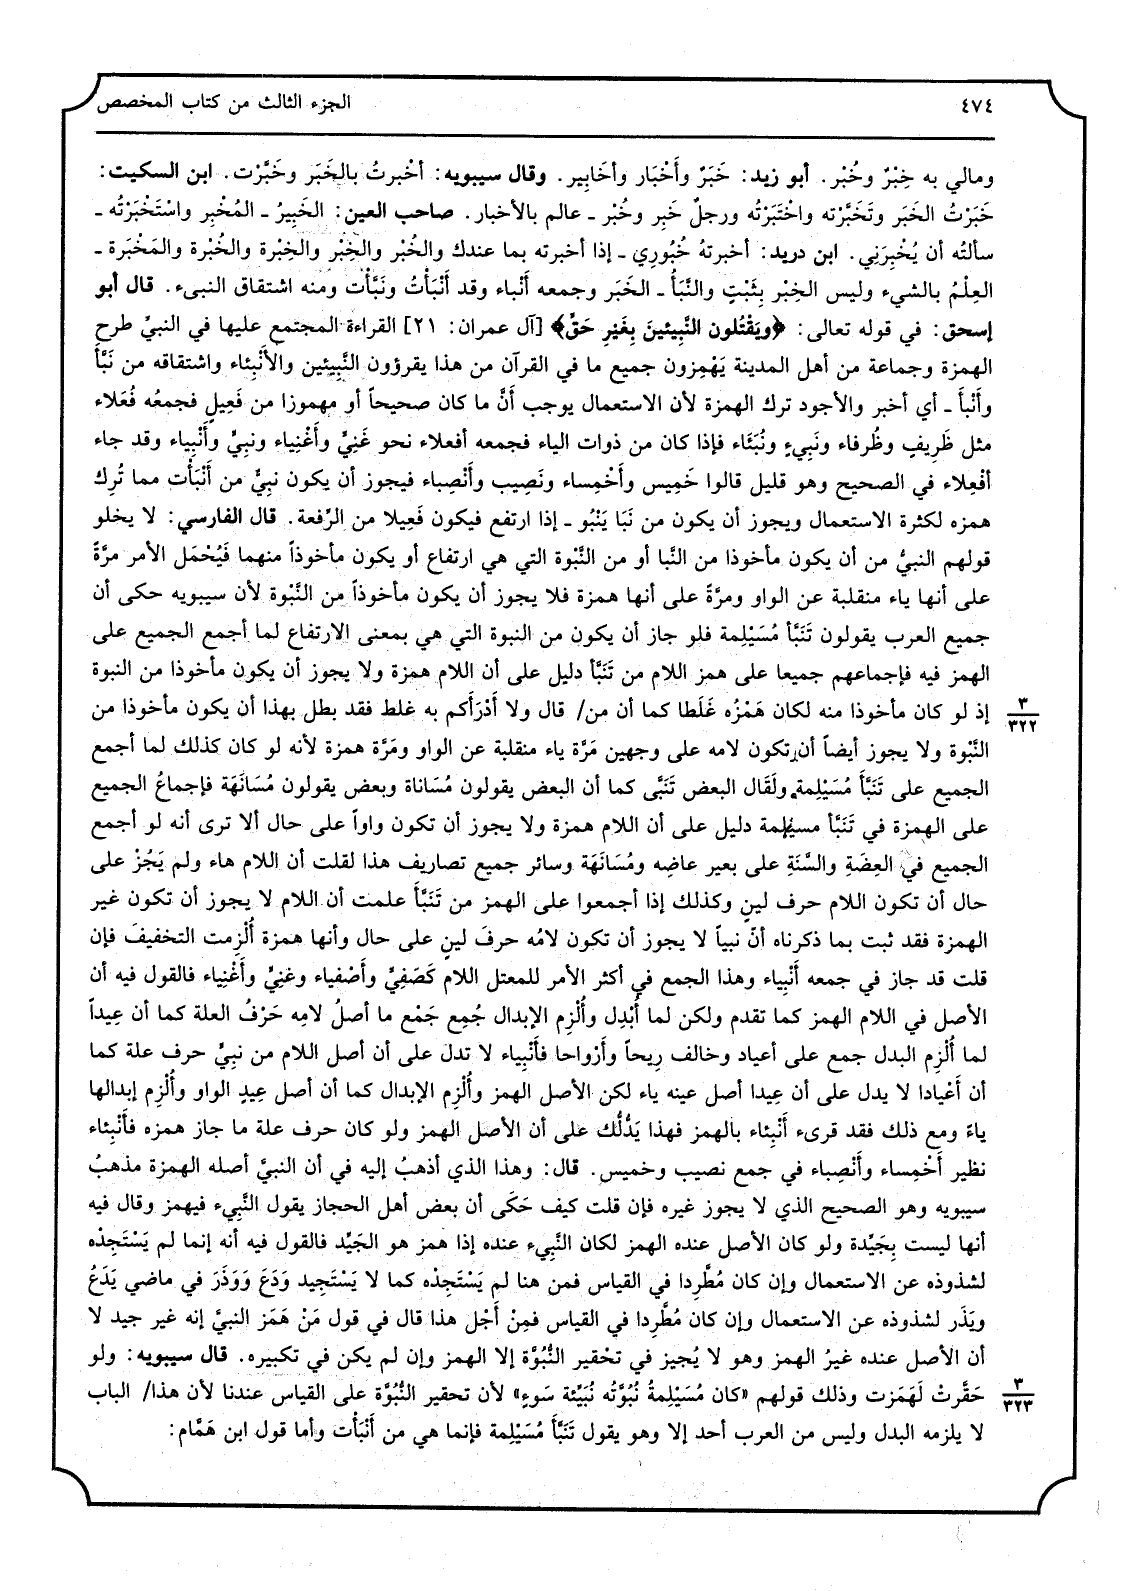 ٤٧٤
الجزء الثالث من كتاب المخصص
ومالي به خِبْرٌ وخُبْر. أبو زيد: خَبَرٌ وأَخْبَار وأخَابِير. وقال سيبويه: أخْبرتُ بالخَبَر وخَبَّرْت. ابن السكيت:
خَبَرْتُ الخَبَر وتَخَبَّرْته واخْتَبَرْتُه ورجلٌ خَبِر وخُبْر ـ عالم بالأخبار. صاحب العين: الخَبِيرُ ـ المُخْبِر واسْتَخْبَرْتُه ـ
سألتُه أن يُخْبِرَنِي. ابن دريد: أخبرتهُ خُبُورِي ـ إذا أخبرته بما عندك والخُبْر والخِبْر والخِبْرة والخُبْرة والمَخْبَرة ـ
العِلْمُ بالشيء وليس الخِبْر بِثَبْتٍ والنَّبَأُ ـ الخَبَر وجمعه أَنْباء وقد أَنْبَأْتُ ونَبَّأْت ومنه اشتقاق النبىء. قال أبو
إسحق: في قوله تعالى: ﴿ويَقْتُلون النَّبِيئينَ بِغَيْرِ حَقّ﴾ [آل عمران: ٢١] القراءة المجتمع عليها في النبيِّ طرح
الهمزة وجماعة من أهل المدينة يَهْمِزون جميع ما في القرآن من هذا يقرؤون النَّبِيئين والأَنْبِئاء واشتقاقه من نَبَّأَ
وأَنْبأَ ـ أي أخبر والأجود ترك الهمزة لأن الاستعمال يوجب أنَّ ما كان صحيحاً أو مهموزا من فَعِيلٍ فجمعُه فُعَلاء
مثل ظَرِيفٍ وظُرفاء ونَبِيءٍ ونُبَئَاء فإذا كان من ذوات الياء فجمعه أفعلاء نحو غَنِيٍّ وأَغْنِياء ونبيٍّ وأَنْبِياء وقد جاء
أفْعِلاء في الصحيح وهو قليل قالوا خَمِيس وأَخْمِساء ونَصِيب وأَنْصِباء فيجوز أن يكون نبيٍّ من أَنْبَأْت مما تُرِك
همزه لكثرة الاستعمال ويجوز أن يكون من نَبَا يَنْبُو ـ إذا ارتفع فيكون فَعِيلا من الرِّفعة. قال الفارسي: لا يخلو
قولهم النبيُّ من أن يكون مأخوذا من النَّبا أو من النَّبْوة التي هي ارتفاع أو يكون مأخوذاً منهما فَيُحْمَل الأمر مرَّةً
على أنها ياء منقلبة عن الواو ومرَّةً على أنها همزة فلا يجوز أن يكون مأخوذاً من النَّبْوة لأن سيبويه حكى أن
جميع العرب يقولون تَنَبَّأ مُسَيْلِمة فلو جاز أن يكون من النبوة التي هي بمعنى الارتفاع لما أجمع الجميع على
الهمز فيه فإجماعهم جميعا على همز اللام من تَنَبَّأ دليل على أن اللام همزة ولا يجوز أن يكون مأخوذا من النبوة
إذ لو كان مأخوذا منه لكان هَمْزُه غَلَطا كما أن من/ قال ولا أَدْرَأَكم به غلط فقد بطل بهذا أن يكون مأخوذا من
٣
٣٢٢
النَّبْوة ولا يجوز أيضاً أن تكون لامه على وجهين مَرَّة ياء منقلبة عن الواو ومَرَّة همزة لأنه لو كان كذلك لما أجمع
الجميع على تَنَبَّأَ مُسَيْلِمة ولَقَال البعض تَنَبَّى كما أن البعض يقولون مُسَاناة وبعض يقولون مُسَانَهَة فإجماعُ الجميع
على الهمزة في تَنَبَّأ مسيلمة دليل على أن اللام همزة ولا يجوز أن تكون واواً على حال ألا ترى أنه لو أجمع
الجميع في العِضَةِ والسَّنَةِ على بعير عاضِه ومُسَانَهَة وسائر جميع تصاريف هذا لقلت أن اللام هاء ولم يَجُزْ على
حال أن تكون اللام حرف لينٍ وكذلك إذا أجمعوا على الهمز من تَنَبَّأَ علمت أن اللام لا يجوز أن تكون غير
الهمزة فقد ثبت بما ذكرناه أنّ نبياً لا يجوز أن تكون لامُه حرفَ لينٍ على حال وأنها همزة أُلْزِمت التخفيفَ فإن
قلت قد جاز في جمعه أَنْبِياء وهذا الجمع في أكثر الأمر للمعتل اللام كَصَفِيٍّ وأَصْفياء وغنِيٍّ وأَغْنِياء فالقول فيه أن
الأصل في اللام الهمز كما تقدم ولكن لما أُبْدِل وأُلْزِم الإبدال جُمِع جَمْع ما أصلُ لامِه حَرْفُ العلة كما أن عِيداً
لما أُلْزِم البدل جمع على أعياد وخالف رِيحاً وأَرْواحا فأَنْبِياء لا تدل على أن أصل اللام من نبيٍّ حرف علة كما
أن أَعْيادا لا يدل على أن عِيدا أصل عينه ياء لكن الأصل الهمز وأُلْزِم الإبدال كما أن أصل عِيدٍ الواو وأُلْزِم إبدالها
ياءً ومع ذلك فقد قرىء أَنْبِئاء بالهمز فهذا يَدُّلُّك على أن الأصل الهمز ولو كان حرف علة ما جاز همزه فأَنْبِئاء
نظير أَخْمِساء وأَنْصِباء في جمع نصيب وخميس. قال: وهذا الذي أذهبُ إليه في أن النبيَّ أصله الهمزة مذهبُ
سيبويه وهو الصحيح الذي لا يجوز غيره فإن قلت كيف حَكَى أن بعض أهل الحجاز يقول النَّبِيء فيهمز وقال فيه
أنها ليست بِجَيِّدة ولو كان الأصل عنده الهمز لكان النَّبِيء عنده إذا همز هو الجَيِّد فالقول فيه أنه إنما لم يَسْتَجِدْه
لشذوذه عن الاستعمال وإن كان مُطَّرِدا في القياس فمن هنا لم يَسْتَجِدْه كما لا يَسْتَجِيد وَدَعَ وَوَذَر في ماضي يَدَعُ
ويَذَر لشذوذه عن الاستعمال وإن كان مُطَّرِدا في القياس فمِنْ أَجْل هذا قال في قول مَنْ هَمَز النبيَّ إنه غير جيد لا
أن الأصل عنده غيرُ الهمز وهو لا يُجيز في تحْقير النُّبُوَّة إلا الهمز وإن لم يكن في تكبيره. قال سيبويه: ولو
حَقَّرتْ لَهَمَزت وذلك قولهم «كان مُسَيْلِمةُ نُبُوَّته نُبَيِّئة سَوءٍ» لأن تحقير النُّبُوَّة على القياس عندنا لأن هذا/ الباب
٣
٣٢٣
لا يلزمه البدل وليس من العرب أحد إلا وهو يقول تَنَبَّأَ مُسَيْلِمة فإنما هي من أَنْبَأْت وأما قول ابن هَمَّام: